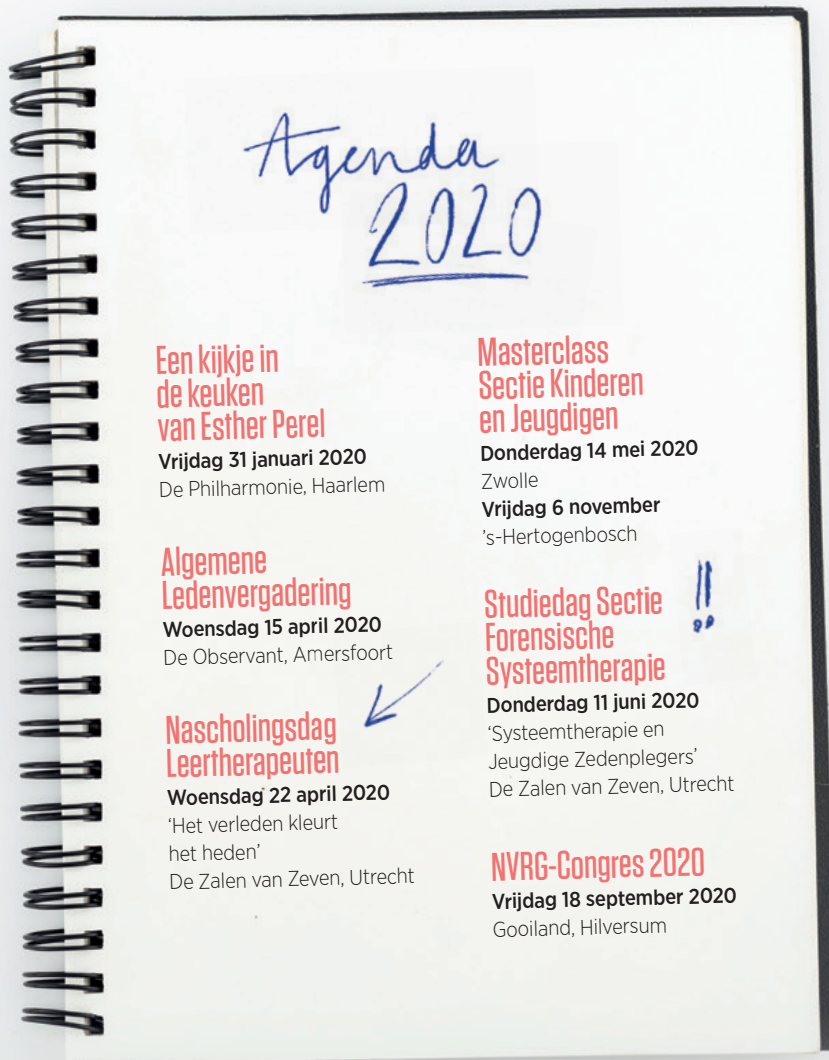 Agenda
2020
Een kijkje in
de keuken
van Esther Perel
Vrijdag 31 januari 2020
De Philharmonie, Haarlem
Algemene
Ledenvergadering
Woensdag 15 april 2020
De Observant, Amersfoort
Nascholingsdag
Leertherapeuten
Woensdag 22 april 2020
‘Het verleden kleurt
het heden’
De Zalen van Zeven, Utrecht
Masterclass
Sectie Kinderen
en Jeugdigen
Donderdag 14 mei 2020
Zwolle
Vrijdag 6 november
’s-Hertogenbosch
Studiedag Sectie
Forensische
Systeemtherapie
!!
Donderdag 11 juni 2020
‘Systeemtherapie en
Jeugdige Zedenplegers’
De Zalen van Zeven, Utrecht
NVRG-Congres 2020
Vrijdag 18 september 2020
Gooiland, Hilversum